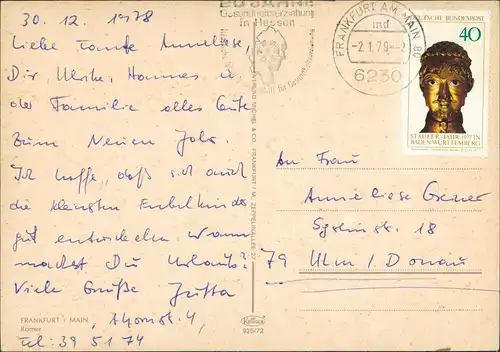 30. 12. 1978
Liebe Tante Anneliese,
Dir, Ulrike, Hannes u.
der Familie alles Gute
zum Neuen Jahr.
Ich hoffe, daß sich auch
die kleinsten Enkelkinder
gut entwickeln. Wann
machst Du Urlaub?
Viele Grüße Jutta
4,
Tel: 39 51 74
FRANKFURT / MAIN
Römer
20 JAHRE
Gesundheitserziehung
in Hessen
FRANKFURT AM MAIN 80
md
-2.1.79--2
6230
DEUTSCHE BUNDESPOST
40
STAUFER-JAHR 1977 IN
BADEN-WÜRTTEMBERG
MICHEL & CO., FRANKFURT / M. ZEPPELINALLEE 27
925/72
An Frau
Anneliese
18
79 Ulm / Donau